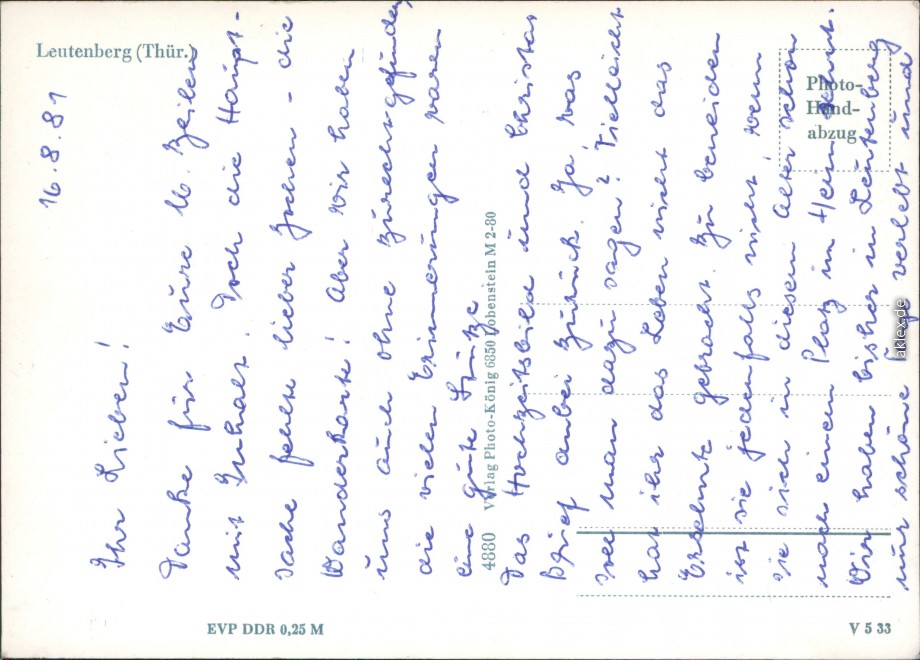 Leutenberg (Thür.)
Photo-
Hand-
abzug
16.8.81
Ihr Lieben!
Danke für Eure lb. Zeilen
mit Inhalt! Doch die Haupt-
sache fehlte lieber Jochen - die
Wanderkarte! Aber wir haben
uns auch ohne zurechtgefunden,
die vielen Erinnerungen waren
eine gute Stütze
Das Hochzeitsbild und Christas
Brief anbei zurück. Ja, was
soll man dazu sagen? Vielleicht
hat ihr das Leben nicht das
Ersehnte gebracht. Zu beneiden
ist sie jedenfalls nicht, wenn
sie sich in diesem Alter schon
nach einem Platz im Heim sehnt.
Wir haben bisher in Leutenberg
nur schöne Tage verlebt und
4880 Verlag Photo-König 6850 Lobenstein M 2-80
EVP DDR 0,25 M
V 5 33
aklex.de